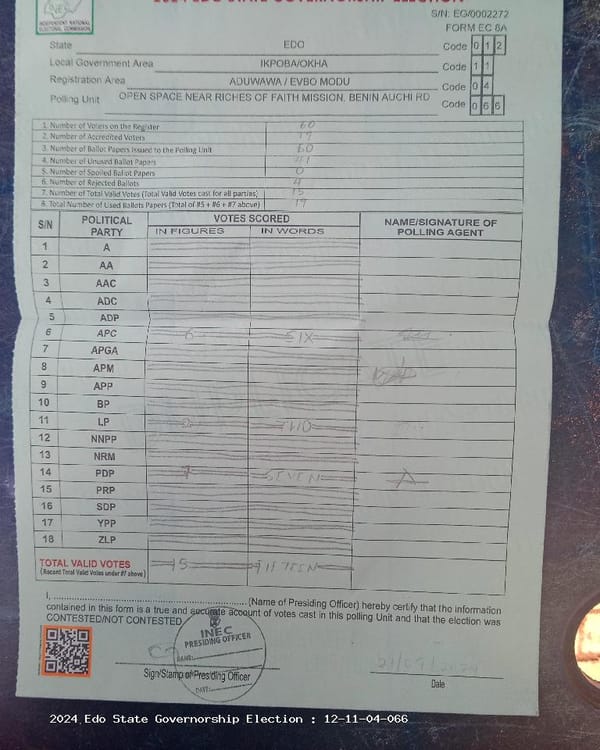 INEC
INDEPENDENT NATIONAL ELECTORAL COMMISSION
2024 EDO STATE GOVERNORSHIP ELECTION
S/N: EG/0002272
FORM EC 8A
State EDO Code 0 1 2
Local Government Area IKPOBA/OKHA Code 1 1
Registration Area ADUWAWA / EVBO MODU Code 0 4
Polling Unit OPEN SPACE NEAR RICHES OF FAITH MISSION, BENIN AUCHI RD Code 0 6 6
1. Number of Voters on the Register 60
2. Number of Accredited Voters 19
3. Number of Ballot Papers Issued to the Polling Unit 60
4. Number of Unused Ballot Papers 41
5. Number of Spoiled Ballot Papers 0
6. Number of Rejected Ballots 4
7. Number of Total Valid Votes (Total Valid Votes cast for all parties) 15
8. Total Number of Used Ballots Papers (Total of #5 + #6 + #7 above) 19
S/N POLITICAL PARTY VOTES SCORED NAME/SIGNATURE OF POLLING AGENT
IN FIGURES IN WORDS
1 A
2 AA
3 AAC
4 ADC
5 ADP
6 APC 6 SIX
7 APGA
8 APM
9 APP
10 BP
11 LP 2 TWO
12 NNPP
13 NRM
14 PDP 7 SEVEN
15 PRP
16 SDP
17 YPP
18 ZLP
TOTAL VALID VOTES 15
(Record Total Valid Votes under #7 above)
I, ........................ (Name of Presiding Officer) hereby certify that the information
contained in this form is a true and accurate account of votes cast in this polling Unit and that the election was
CONTESTED/NOT CONTESTED
INEC
PRESIDING OFFICER
NAME:
DATE:
Sign/Stamp of Presiding Officer
21/09/2024
Date
2024 Edo State Governorship Election : 12-11-04-066